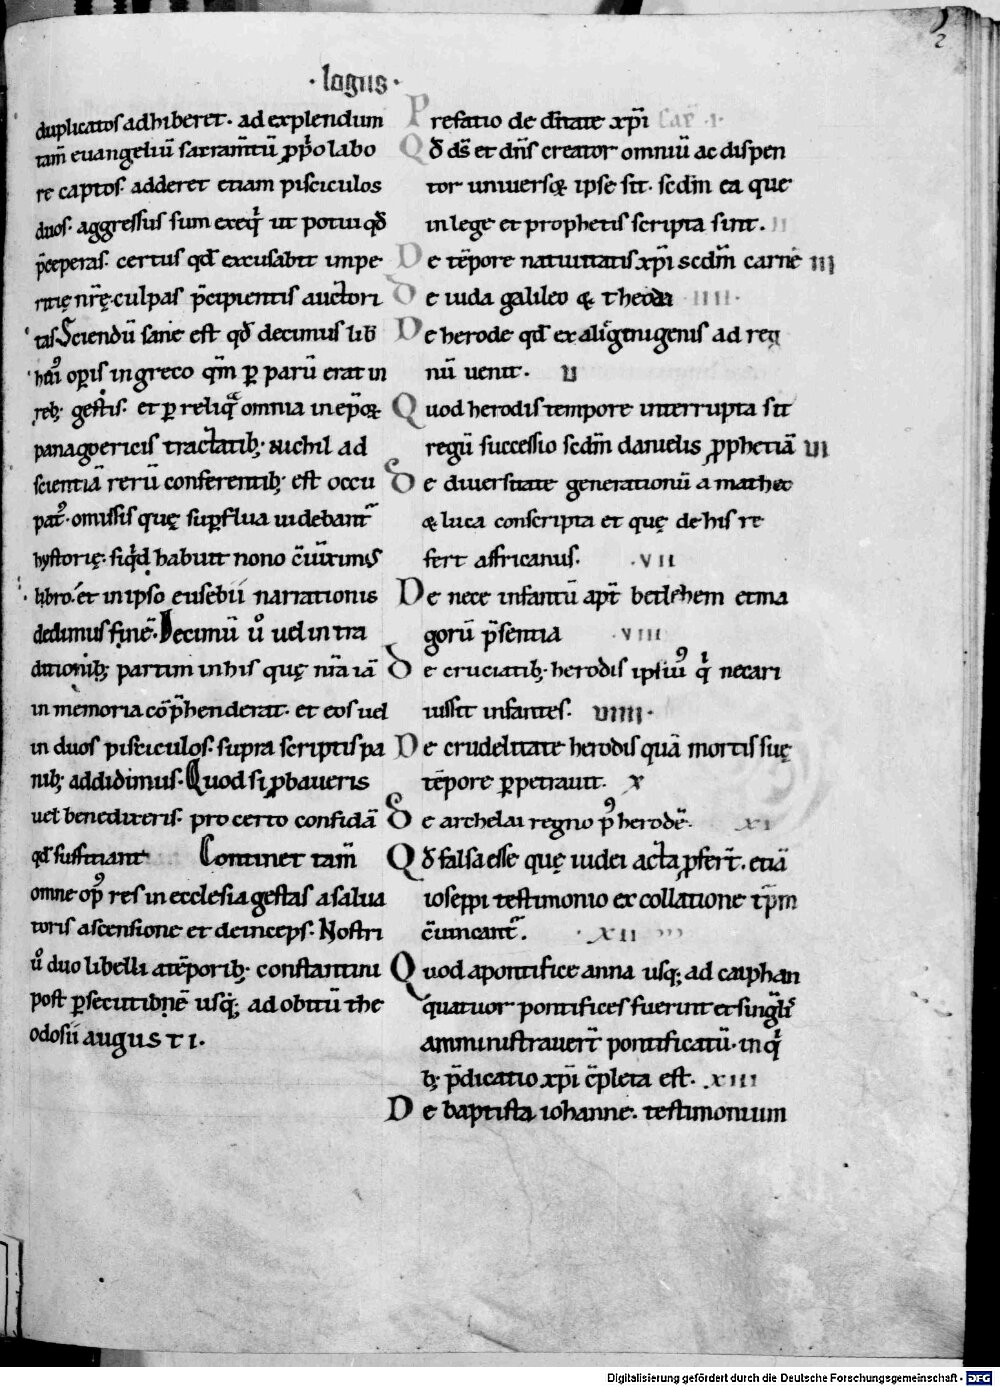 2
·logus·
duplicatos adhiberet· ad explendum
tam̄ euangeliū sacram̄tū ꝓp̄o labo
re captos· adderet etiam pisciculos
duos· aggressus sum exeq̇ ut potui qđ
p̄ceperas· certus qđ excusabit impe
ritię nr̄ę culpas p̄cipientis auctori
tas Sciendū sane est qđ decimus lib̄
hui᷒ oꝑis in greco qm̄ ꝑ parū erat in
reb; gestis· et ꝑ reliq̄ omnia in ep̄oꝝ
panagoericis tractatib; nichil ad
scientiā rerū conferentib; est occu
pat᷒· omissis quę suꝑflua uidebant᷑
hystorię· siqd habuit nono c̄iūximus
libro· et in ipso eusebii narrationis
dedimus finē· Decimū u̇ uel in tra
ditionib; partim in his quę nr̄a iā
in memoria cōp̄henderat· et eos uel
in duos pisciculos· supra scriptis pa
nib; addidimus· Quod si ꝓbaueris
uel benedixeris· pro certo confidā
qđ sufficiant Continet tam̄
omne op᷒ res in ecclesia gestas a salua
toris ascensione et deinceps· Nostri
u̇ duo libelli a tēporib; constantini
post ꝑsecutionē usq; ad obitū the
odosii augusti·
Prefatio de dīnitate xp̄i Cap̄ ·I·
Qđ ds̄ et dn̄s creator omniū ac dispen
tor uniuersoꝝ ipse sit· scd̄m ea que
in lege et prophetis scripta sint· II
De tēpore natiuitatis xp̄i scd̄m carnē III
De iuda galileo ⁊ theoda ·IIII·
De herode qđ ex aligenigenis ad reg
nū uenit· V
Quod herodis tempore interrupta sit
regū successio scd̄m danielis ꝓphetiā VI
De diuersitate generationū a matheo
⁊ luca conscripta et quę de his re
fert affricanus· ·VII
De nece infantū apt̄ betlehem et ma
gorū p̄sentia ·VIII
De cruciatib; herodis ipsiu᷒ q̇ necari
iussit infantes· VIIII·
De crudelitate herodis quā mortis suę
tēpore ꝑpetrauit· X
De archelai regno p᷒ herodē· XI
Qđ falsa esse quę iudei acta ꝓfert̄· etiā
ioseppi testimonio ex collatione tp̄m
c̄uincant᷑· ·XII
Quod a pontifice anna usq; ad caiphan
quatuor pontifices fuerint et singlī
amministrauert̄ pontificatū· in q̇
b; p̄dicatio xp̄i c̄pleta est· XIII
De baptista iohanne· testimonium
Digitalisierung gefördert durch die Deutsche Forschungsgemeinschaft - DFG